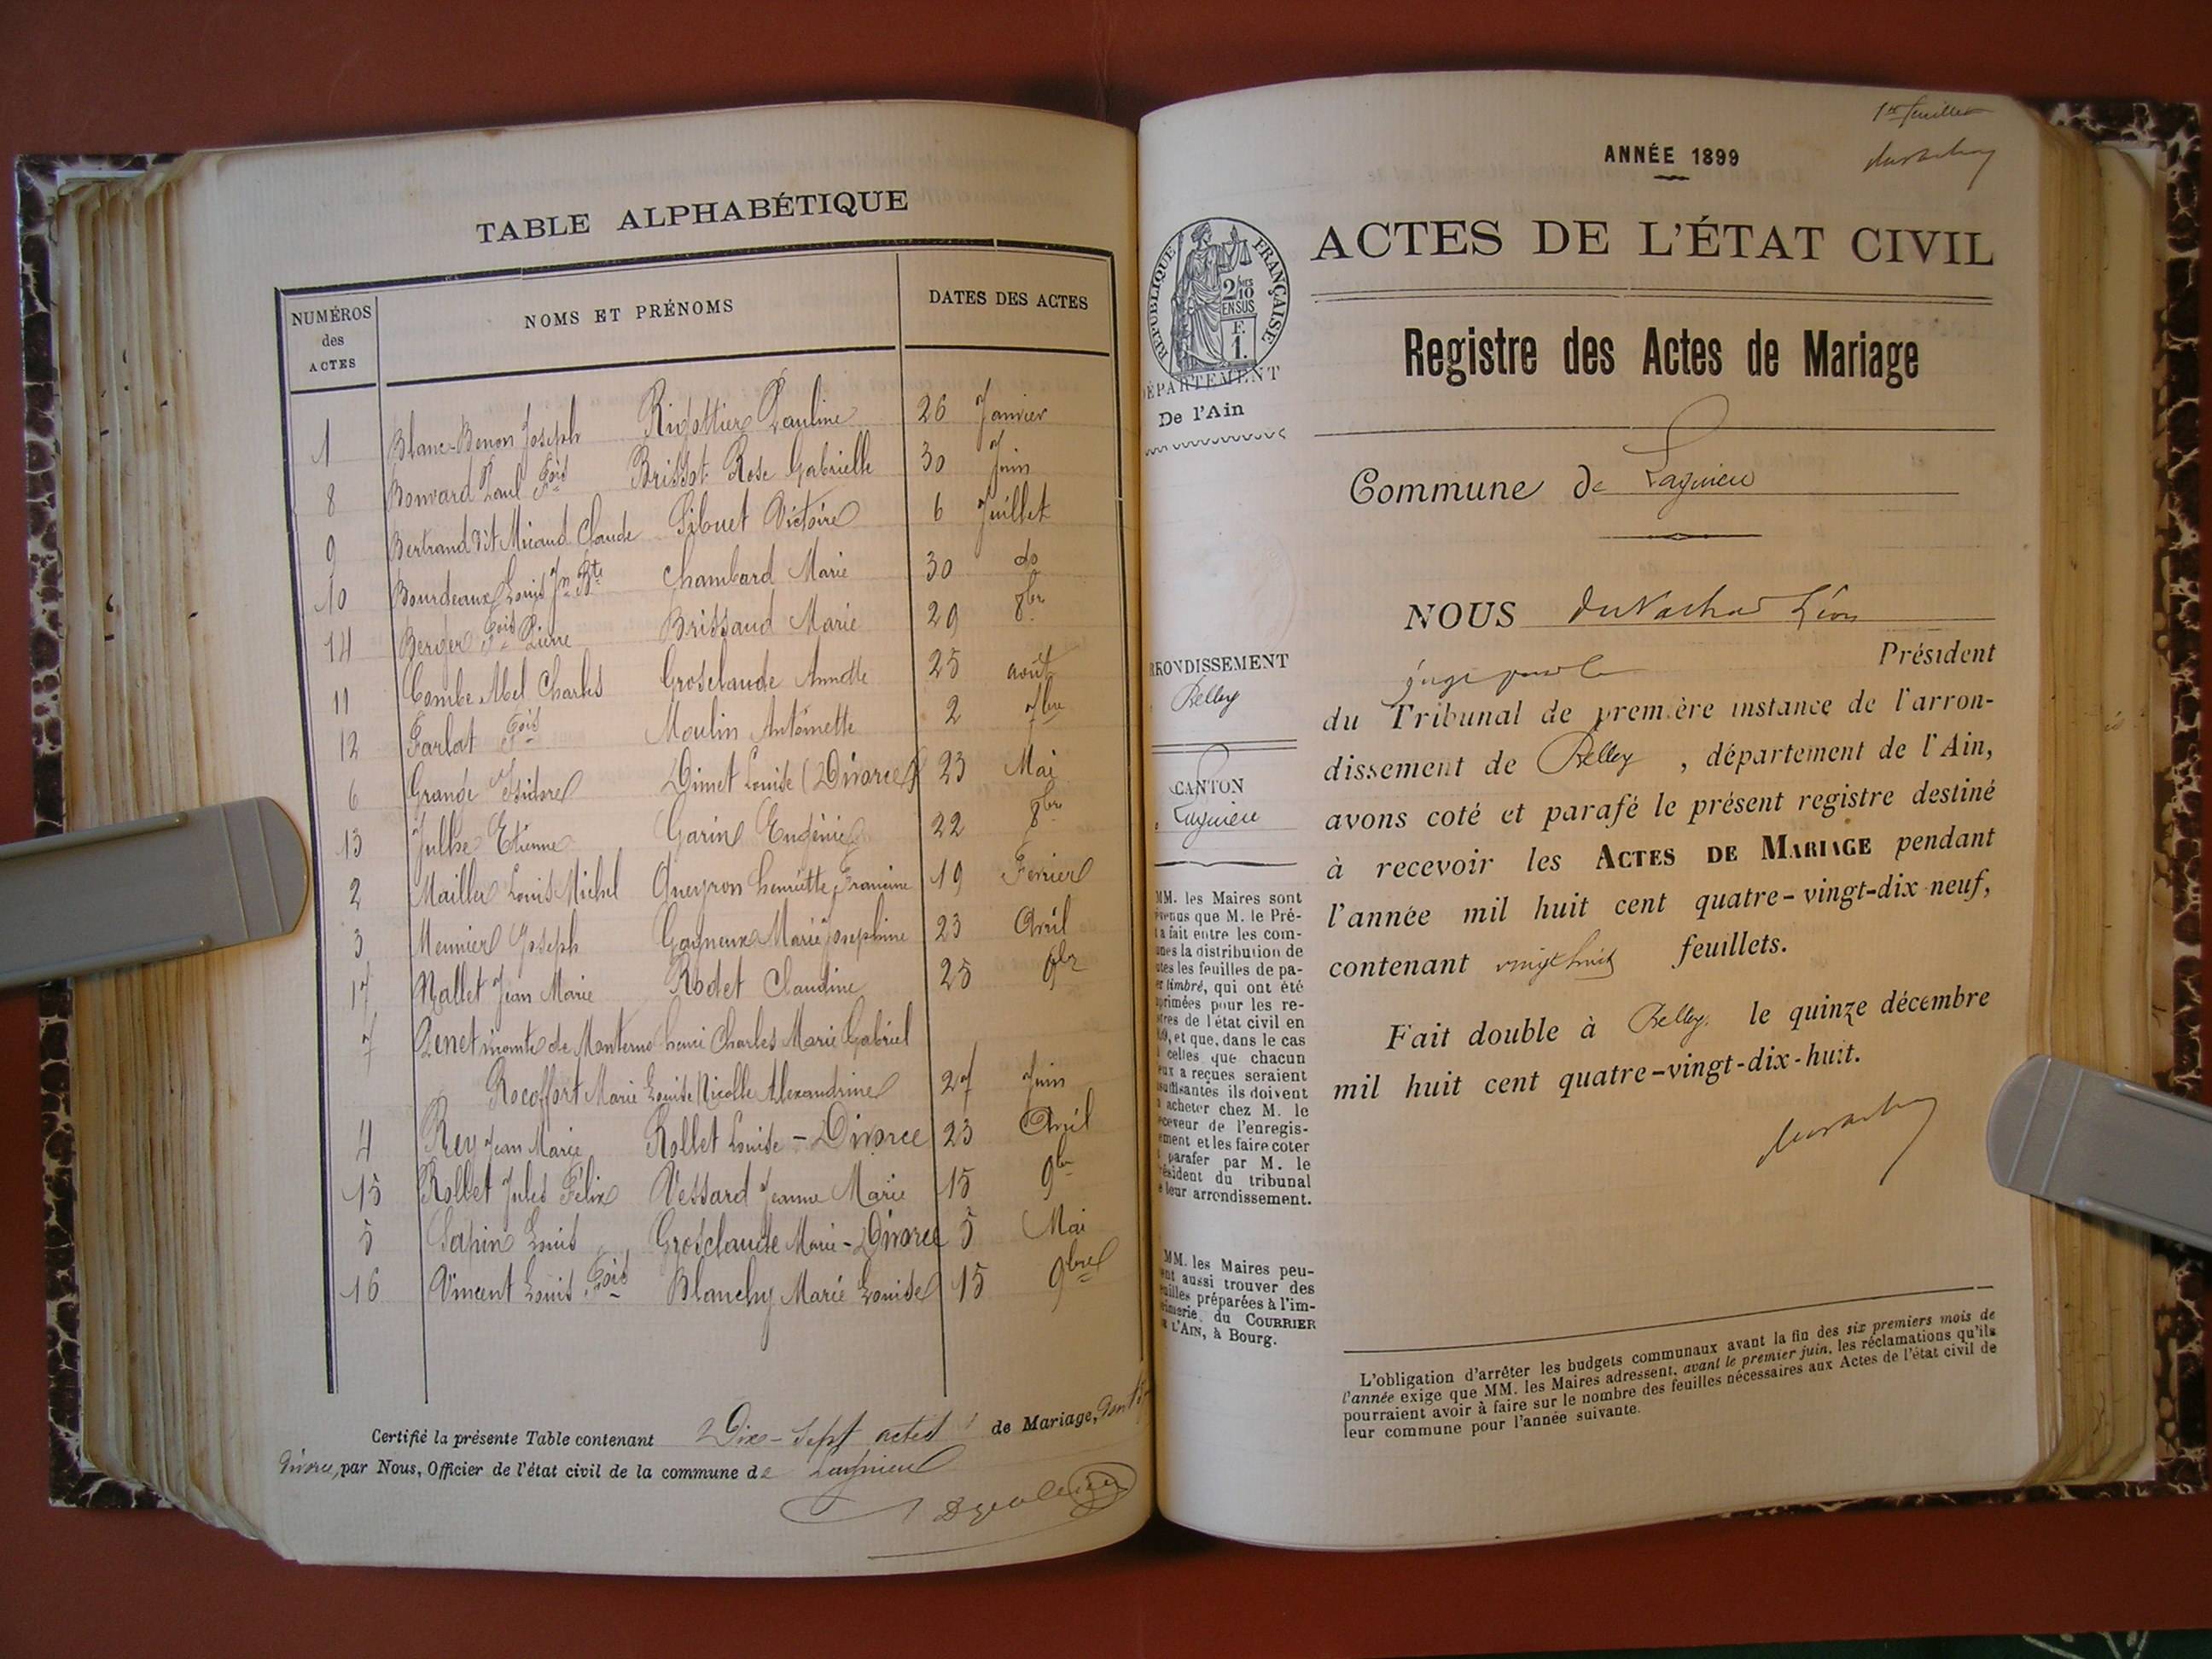 TABLE ALPHABÉTIQUE
NUMÉROS des ACTES
NOMS ET PRÉNOMS
DATES DES ACTES
1 Blanc-Benon Joseph Rigottier Pauline 26 Janvier
8 Bonvard Paul Fois Brissot Rose Gabrielle 30 Juin
9 Bertrand dit Micaud Claude Sibuet Victoire 6 Juillet
10 Bourdeaux Louis Jn Bte Chambard Marie 30 do
14 Berger Fois Pierre Brissaud Marie 29 8bre
11 Combe Abel Charles Grosclaude Annette 25 août
12 Farlat Fois Moulin Antoinette 2 7bre
6 Grange Isidore Dimet Louise (Divorce) 23 Mai
13 Julhe Etienne Garin Eugénie 22 8bre
2 Maillet Louis Michel Queyron henriette Francine 19 Février
3 Meunier Joseph Gagneux Marie Josephine 23 Avril
17 Nallet Jean Marie Rodet Claudine 25 9bre
7 Penet de Monterno henri Charles Marie Gabriel
Rocoffort Marie Louise Nicolle Alexandrine 27 Juin
4 Rey Jean Marie Rollet Louise - Divorce 23 Avril
15 Rollet Jules Félix Vessard Jeanne Marie 15 9bre
5 Sapin Louis Grosclaude Marie - Divorce 5 Mai
16 Vincent Louis Fois Blanchy Marie Louise 15 9bre
Certifié la présente Table contenant Dix-sept actes de Mariage, dont
divorce, par Nous, Officier de l'état civil de la commune de Lagnieu
1er feuillet
ANNÉE 1899
ACTES DE L'ÉTAT CIVIL
RÉPUBLIQUE FRANÇAISE
2/10 EN SUS
F.
1.
DÉPARTEMENT
De l'Ain
Registre des Actes de Mariage
Commune de Lagnieu
NOUS Léon
juge pour le Président
du Tribunal de première instance de l'arron-
dissement de Belley, département de l'Ain,
avons coté et parafé le présent registre destiné
à recevoir les ACTES DE MARIAGE pendant
l'année mil huit cent quatre-vingt-dix-neuf,
contenant vingt huit feuillets.
Fait double à Belley, le quinze décembre
mil huit cent quatre-vingt-dix-huit.
RRONDISSEMENT
Belley
CANTON
Lagnieu
MM. les Maires sont
que M. le Pré-
a fait entre les com-
unes la distribution de
tes les feuilles de pa-
er timbré, qui ont été
primées pour les re-
tres de l'état civil en
9, et que, dans le cas
celles que chacun
eux a reçues seraient
suffisantes ils doivent
acheter chez M. le
ceveur de l'enregis-
ement et les faire coter
parafer par M. le
ésident du tribunal
e leur arrondissement.
MM. les Maires peu-
ent aussi trouver des
uilles préparées à l'im-
imerie du COURRIER
L'AIN, à Bourg.
L'obligation d'arrêter les budgets communaux avant la fin des six premiers mois de
l'année exige que MM. les Maires adressent, avant le premier juin, les réclamations qu'ils
pourraient avoir à faire sur le nombre des feuilles nécessaires aux Actes de l'état civil de
leur commune pour l'année suivante.